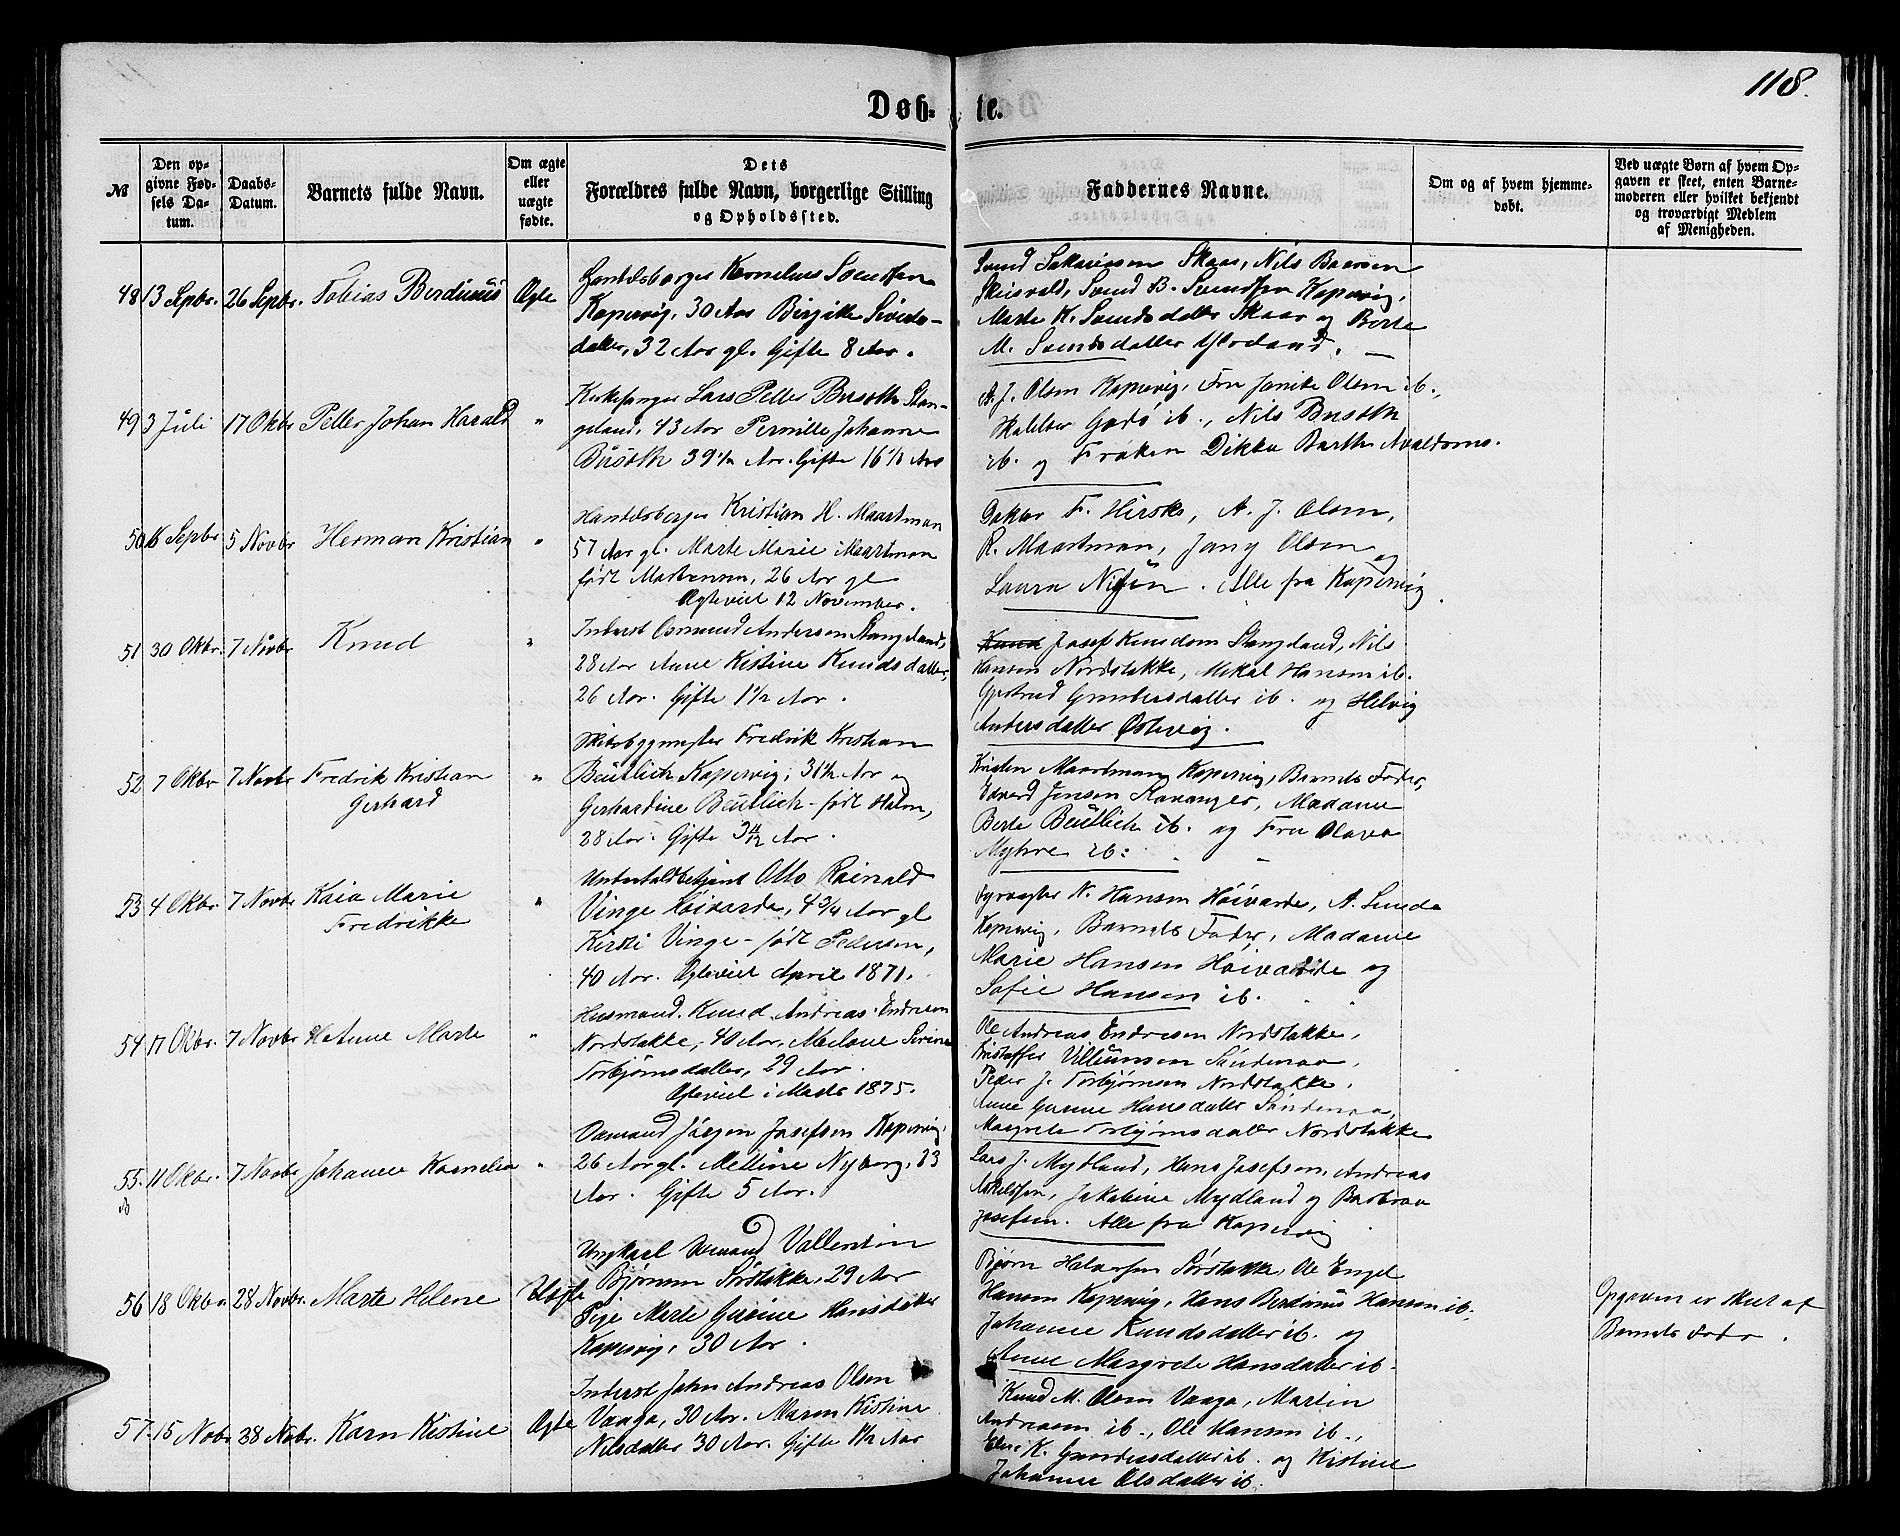 118.
Døb- te.
№
Den opgivne Fødsels Datum.
Daabs-Datum.
Barnets fulde Navn.
Om ægte eller uægte fødte.
Dets Forældres fulde Navn, borgerlige Stilling og Opholdssted.
Faddernes Navne.
Om og af hvem hjemmedøbt.
Ved uægte Børn af hvem Opgaven er skeet, enten Barnemoderen eller hvilket bekjendt og troværdigt Medlem af Menigheden.
48 13 Sepbr. 26 Sepbr. Tobias Berdinus Ægte
Handelsborger Kornelius Svendsen
Kopervig, 30 Aar Birgitte Sivers-
datter, 32 Aar gl. Gifte 8 Aar.
Svend Sakariasen Skaar, Nils
Svend B. Svendsen Kopervig,
Marte K. Svendsdatter Skaar og Berte
M. Svendsdatter
49 3 Juli 17 Okbr Petter Johan Harald "
Kirkesanger Lars Petter Busoth Stan-
geland, 43 Aar Pernille Johanne
Busoth 39 1/2 Aar. Gifte 16 1/2 Aar
A. J. Olsen Kopervig, Fru Janike Olsen ib.,
Godø ib., Nils Busoth
ib. og Frøken Dikka Barth Avaldsnes.
50 16 Sepbr 5 Novbr Herman Kristian "
Handelsborger Kristian H. Maartman
57 Aar gl. Marte Marie Maartman
født Mortensen, 26 Aar gl
Ægteviet 12 November.
Doktor F. Hirsks, A. J. Olsen,
R. Maartman, Jany Olsen og
Laura . Alle fra Kopervig.
51 30 Okbr. 7 Novbr Knud "
Inderst Osmund Andersen Stangeland,
28 Aar Anne Kistine Knudsdatter,
26 Aar. Gifte 1 1/2 Aar.
Knud Josef Knudsen Stangeland, Nils
Hansen Nordstokke, Mikal Hansen ib.
Gjertrud Gundersdatter ib. og Helvig
Andersdatter Østevig.
52 7 Okbr 7 Novbr Fredrik Kristian
Gerhard "
Skibsbygmester Fredrik Kristian
Beütlich Kopervig, 31 1/2 Aar og
Gerhardine Beütlich født Holm,
28 Aar. Gifte 3 Aar.
Kristen Maartman Kopervig, Barnets Fader,
Edvard Jensen Stavanger, Madame
Berte Beütlich ib. og Fru Olava
Myhre ib:
53 4 Okbr. 7 Novbr Kaia Marie
Fredrikke "
Undertoldbetjent Otto Rainald
Vinge Høivarde, 43 Aar gl
Kirsti Vinge født Pedersen,
40 Aar. Ægteviet April 1871.
Fyrvogter N. Hansen Høivarde, A. Lunde
Kopervig, Barnets Fader, Madame
Marie Hansen Høivarde og
Sofie Hansen ib.
54 17 Okbr. 7 Novbr Anne Marte "
Husmand Knud Andreas Endresen
Nordstokke, 40 Aar, Serine
Torbjørnsdatter, 29 Aar.
Ægteviet i Marts 1875.
Ole Andreas Endresen Nordstokke,
Kristoffer Sündenaa,
Peder J. Torbjørnsen Nordstokke,
Anne Gurine Hansdatter Sündenaa,
Margrete Torbjørnsdatter Nordstokke
55. 11 Okbr. 7 Novbr Johanne Kornelia "
Jørgen Josefsen Kopervig,
26 Aar gl. Mettine Nyborg, 33
Aar. Gifte 5 Aar.
Lars J. Mydland, Hans Josefsen, Andreas
Jakobine Mydland og Barbraa
Josefsen. Alle fra Kopervig
56 18 Okbr 28 Novbr. Marte Helene Uægte
Ungkarl Vallentin
Bjørnsen Sørstokke, 29 Aar
Pige Marte Gurine Hansdatter
Kopervig, 30 Aar.
Bjørn Halvorsen Sørstokke, Ole Engel
Hansen Kopervig, Hans Berdinus Hansen ib.
Johanne Knudsdatter ib. og
Anne Margrete Hansdatter ib.
Opgaven er skeet af
Barnets Fader.
57. 15 Novbr 28 Novbr. Karn Kistine Ægte
Inderst John Andreas Olsen
Vaaga, 30 Aar. Maren Kistine
Nilsdatter 30 Aar. Gifte 1 1/2 Aar
Knud M. Olsen Vaaga, Martin
Andreasen ib., Ole Hansen ib.,
K. Gundersdatter ib. og Kistine
Johanne Olsdatter ib.